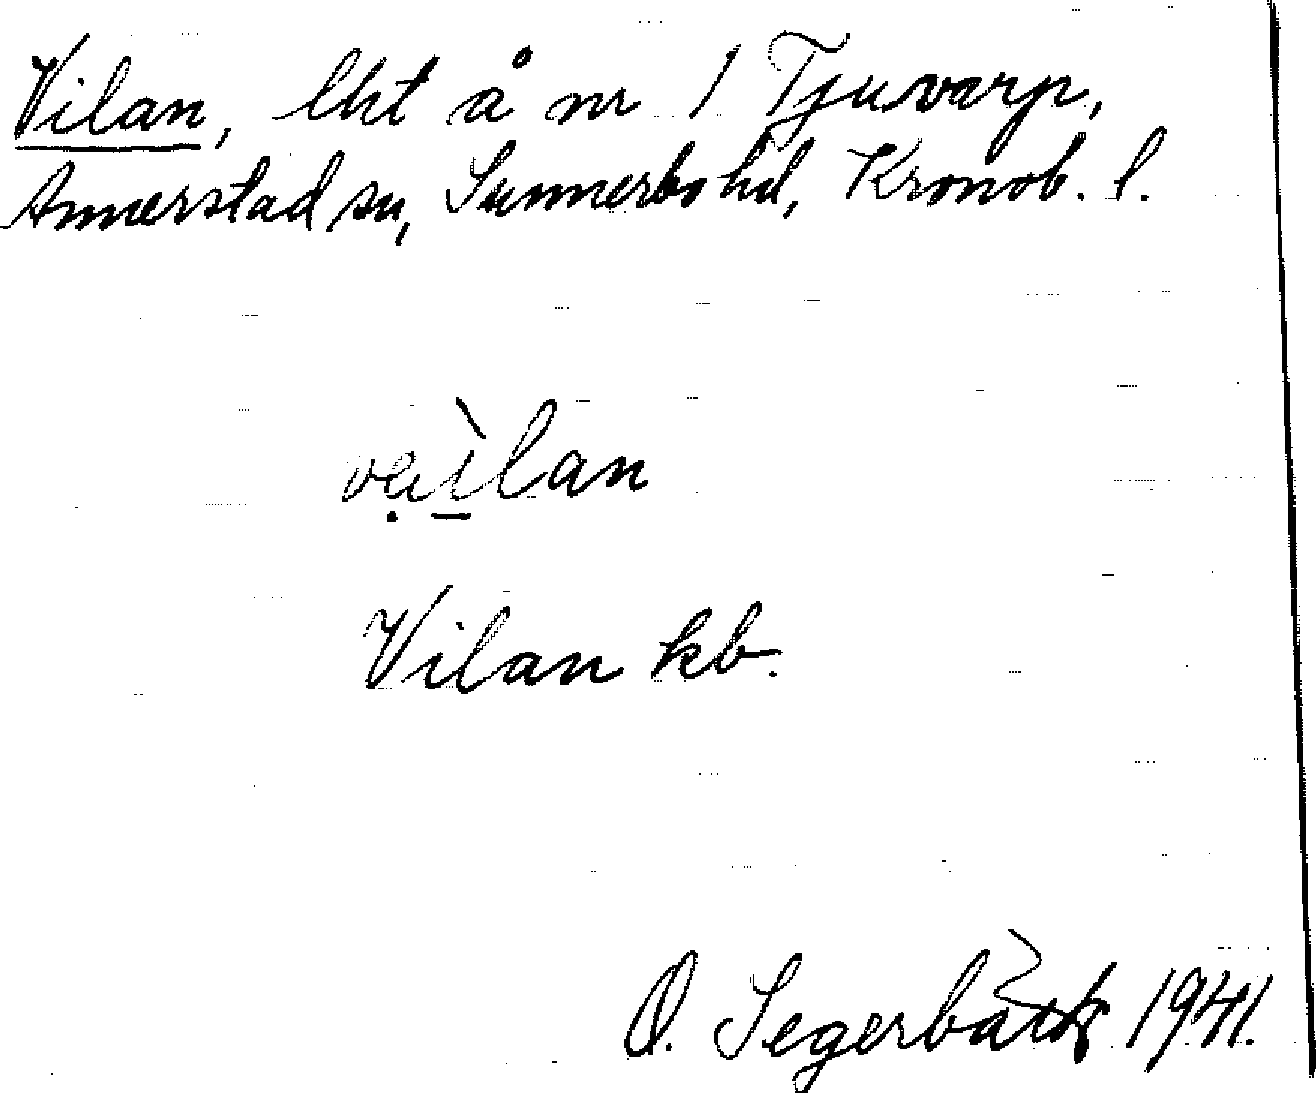 Vilan, lht å nr 1 Tjuvarp,
Annerstad sn, Sunnerbo hd, Kronob. l.
vẹì̱lan
Vilan kb.
O. Segerbäck 1941.